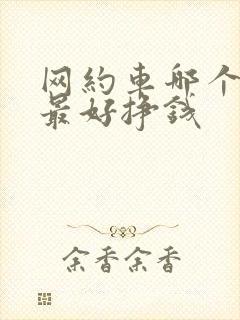 网约車哪个
最好挣钱
余香余香